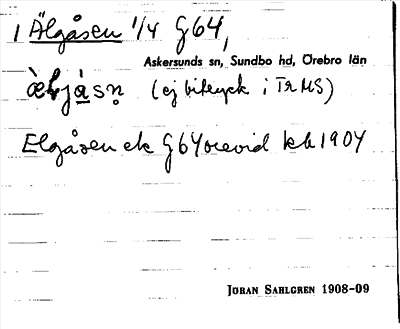 1 Älgåsen 1/4 G64,
Askersunds sn, Sundbo hd, Örebro län
(ej bitryck i TrMS)
Elgåsen ek G64 orevid kb 1904
JÖRAN SAHLGREN 1908-09